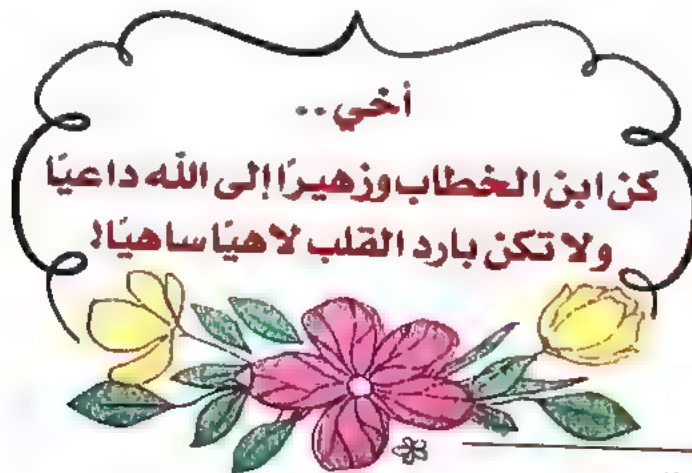 أخي..
كن ابن الخطاب وزهيرًا إلى الله داعيًا
ولا تكن بارد القلب لاهيًا ساهيًا!